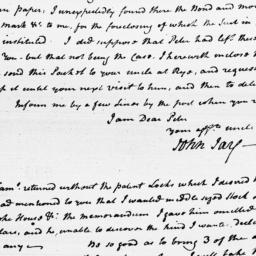 paper; I unexpectedly found there the Bond and mor
mark &c to me, for the foreclosing of which the Suit is
instituted. I did suppose that Peter had left these
you - but that not being the Case, I herewith inclose
send this Packet to your uncle at Rye, and reques
it until your next visit to him; and then to del
Inform me by a few Lines by the post when you r
I am Dear Peter
your aff.te uncle
John Jay
returned without the patent Locks which I desired h
had mentioned to you that I wanted middle sized stock
the House &c: the memorandum I gave him omitted
lars, and he, unable to discover the kind I want, decl
any — Be so good as to bring 3 of the